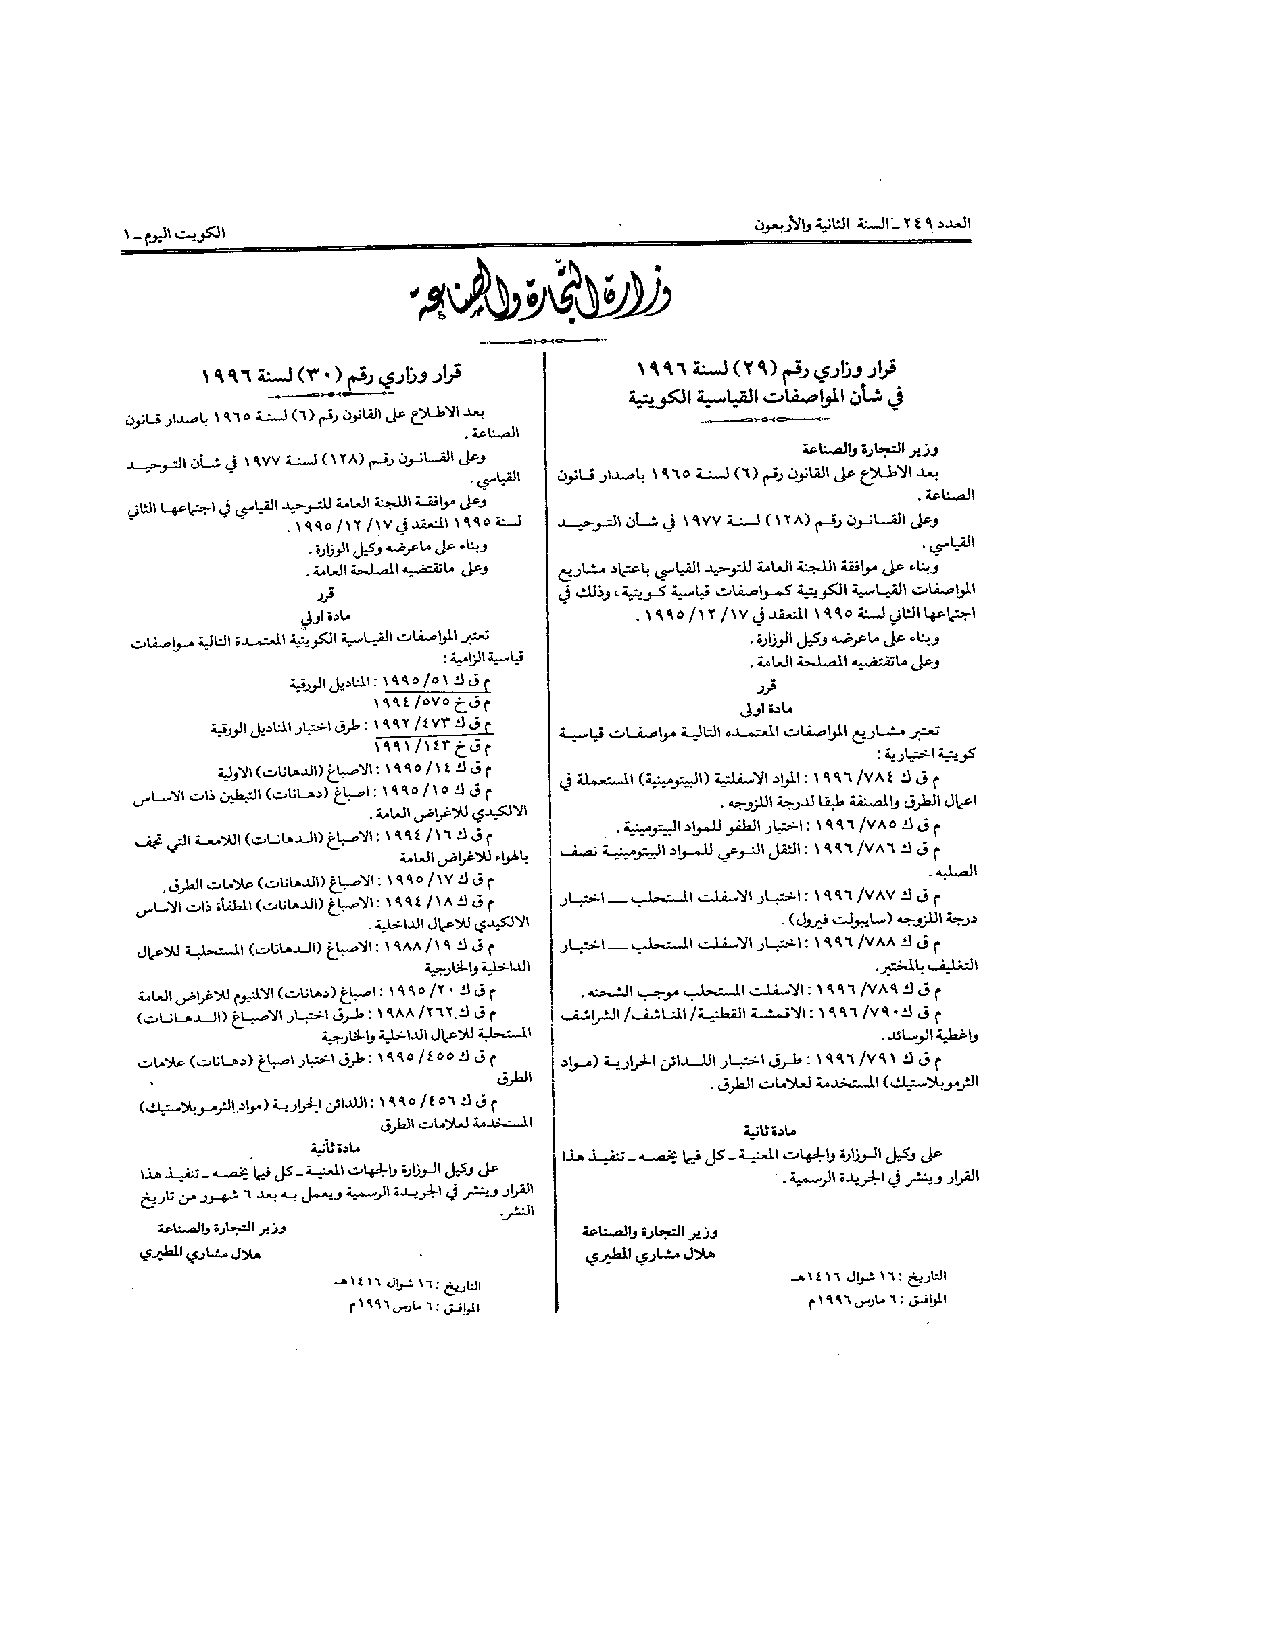 العدد ٢٤٩ ـ السنة الثانية والأربعون
الكويت اليوم ـ ١
وزارة التجارة والصناعة
قرار وزاري رقم (٢٩) لسنة ١٩٩٦
في شأن المواصفات القياسية الكويتية
وزير التجارة والصناعة
بعد الاطلاع على القانون رقم (٦) لسنة ١٩٦٥ باصدار قانون
الصناعة .
وعلى القانون رقم (١٢٨) لسنة ١٩٧٧ في شأن التوحيد
القياسي .
وبناء على موافقة اللجنة العامة للتوحيد القياسي باعتماد مشاريع
المواصفات القياسية الكويتية كمواصفات قياسية كويتية ، وذلك في
اجتماعها الثاني لسنة ١٩٩٥ المنعقد في ١٧/ ١٢/ ١٩٩٥ .
وبناء على ماعرضه وكيل الوزارة .
وعلى ماتقتضيه المصلحة العامة .
قرر
مادة اولى
تعتبر مشاريع المواصفات المعتمده التالية مواصفات قياسية
كويتية اختيارية :
م ق ك ٧٨٤ /١٩٩٦ : المواد الاسفلتية (البيتومينية) المستعملة في
اعمال الطرق والمصنفة طبقا لدرجة اللزوجه .
م ق ك ٧٨٥ /١٩٩٦ : اختبار الطفو للمواد البيتومينية .
م ق ك ٧٨٦ /١٩٩٦ : الثقل النوعي للمواد البيتومينية نصف
الصلبه .
م ق ك ٧٨٧ /١٩٩٦ : اختبار الاسفلت المستحلب ــ اختبار
درجة اللزوجه (سايبولت فيرول) .
م ق ك ٧٨٨ /١٩٩٦ : اختبار الاسفلت المستحلب ــ اختبار
التغليف بالمختبر .
م ق ك ٧٨٩ /١٩٩٦ : الاسفلت المستحلب موجب الشحنه .
م ق ك ٧٩٠ /١٩٩٦ : الاقمشة القطنية/ المناشف/ الشراشف
واغطية الوسائد .
م ق ك ٧٩١ /١٩٩٦ : طرق اختبار اللدائن الحرارية (مواد
الثرموبلاستيك) المستخدمة لعلامات الطرق .
مادة ثانية
على وكيل الوزارة والجهات المعنية ـ كل فيما يخصه ـ تنفيذ هذا
القرار وينشر في الجريدة الرسمية .
وزير التجارة والصناعة
هلال مشاري المطيري
التاريخ : ١٦ شوال ١٤١٦هـ
الموافق : ٦ مارس ١٩٩٦م
قرار وزاري رقم (٣٠) لسنة ١٩٩٦
بعد الاطلاع على القانون رقم (٦) لسنة ١٩٦٥ باصدار قانون
الصناعة .
وعلى القانون رقم (١٢٨) لسنة ١٩٧٧ في شأن التوحيد
القياسي .
وعلى موافقة اللجنة العامة للتوحيد القياسي في اجتماعها الثاني
لسنة ١٩٩٥ المنعقد في ١٧/ ١٢/ ١٩٩٥ .
وبناء على ماعرضه وكيل الوزارة .
وعلى ماتقتضيه المصلحة العامة .
قرر
مادة اولي
تعتبر المواصفات القياسية الكويتية المعتمدة التالية مواصفات
قياسية الزامية :
م ق ك ٥١ /١٩٩٥ : المناديل الورقية
م ق خ ٥٧٥ /١٩٩٤
م ق ك ٤٧٣ /١٩٩٢ : طرق اختبار المناديل الورقية
م ق خ ١٤٣ /١٩٩١
م ق ك ١٤ /١٩٩٥ : الاصباغ (الدهانات) الاولية
م ق ك ١٥ /١٩٩٥ : اصباغ (دهانات) التبطين ذات الاساس
الالكيدي للاغراض العامة .
م ق ك ١٦ /١٩٩٤ : الاصباغ (الدهانات) اللامعة التي تجف
بالهواء للاغراض العامة
م ق ك ١٧ /١٩٩٥ : الاصباغ (الدهانات) علامات الطرق .
م ق ك ١٨ /١٩٩٤ : الاصباغ (الدهانات) المطفأة ذات الاساس
الالكيدي للاعمال الداخلية .
م ق ك ١٩ /١٩٨٨ : الاصباغ (الدهانات) المستحلبة للاعمال
الداخلية والخارجية
م ق ك ٢٠ /١٩٩٥ : اصباغ (دهانات) الالمنيوم للاغراض العامة
م ق ك ٢٦٢ /١٩٨٨ : طرق اختبار الاصباغ (الدهانات)
المستحلبة للاعمال الداخلية والخارجية
م ق ك ٤٥٥ /١٩٩٥ : طرق اختبار اصباغ (دهانات) علامات
الطرق
م ق ك ٤٥٦ /١٩٩٥ : اللدائن الحرارية (مواد الثرموبلاستيك)
المستخدمة لعلامات الطرق
مادة ثانية
على وكيل الوزارة والجهات المعنية ـ كل فيما يخصه ـ تنفيذ هذا
القرار وينشر في الجريدة الرسمية ويعمل به بعد ٦ شهور من تاريخ
النشر .
وزير التجارة والصناعة
هلال مشاري المطيري
التاريخ : ١٦ شوال ١٤١٦هـ
الموافق : ٦ مارس ١٩٩٦م